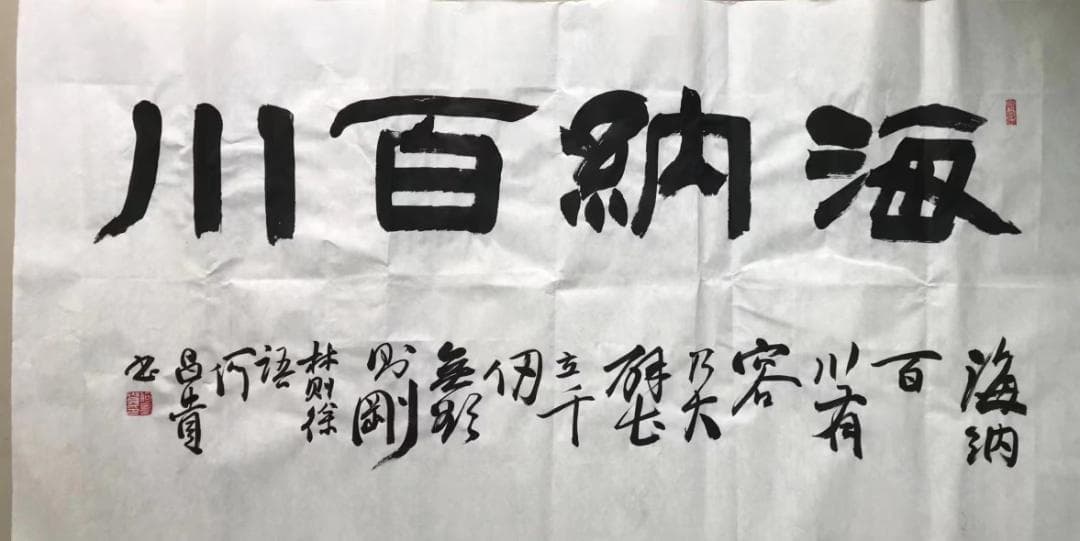 海納百川
海纳
百
川有
容
乃大
壁
立千
仞
無欲
则剛
林则徐
语
何
昌貴
书